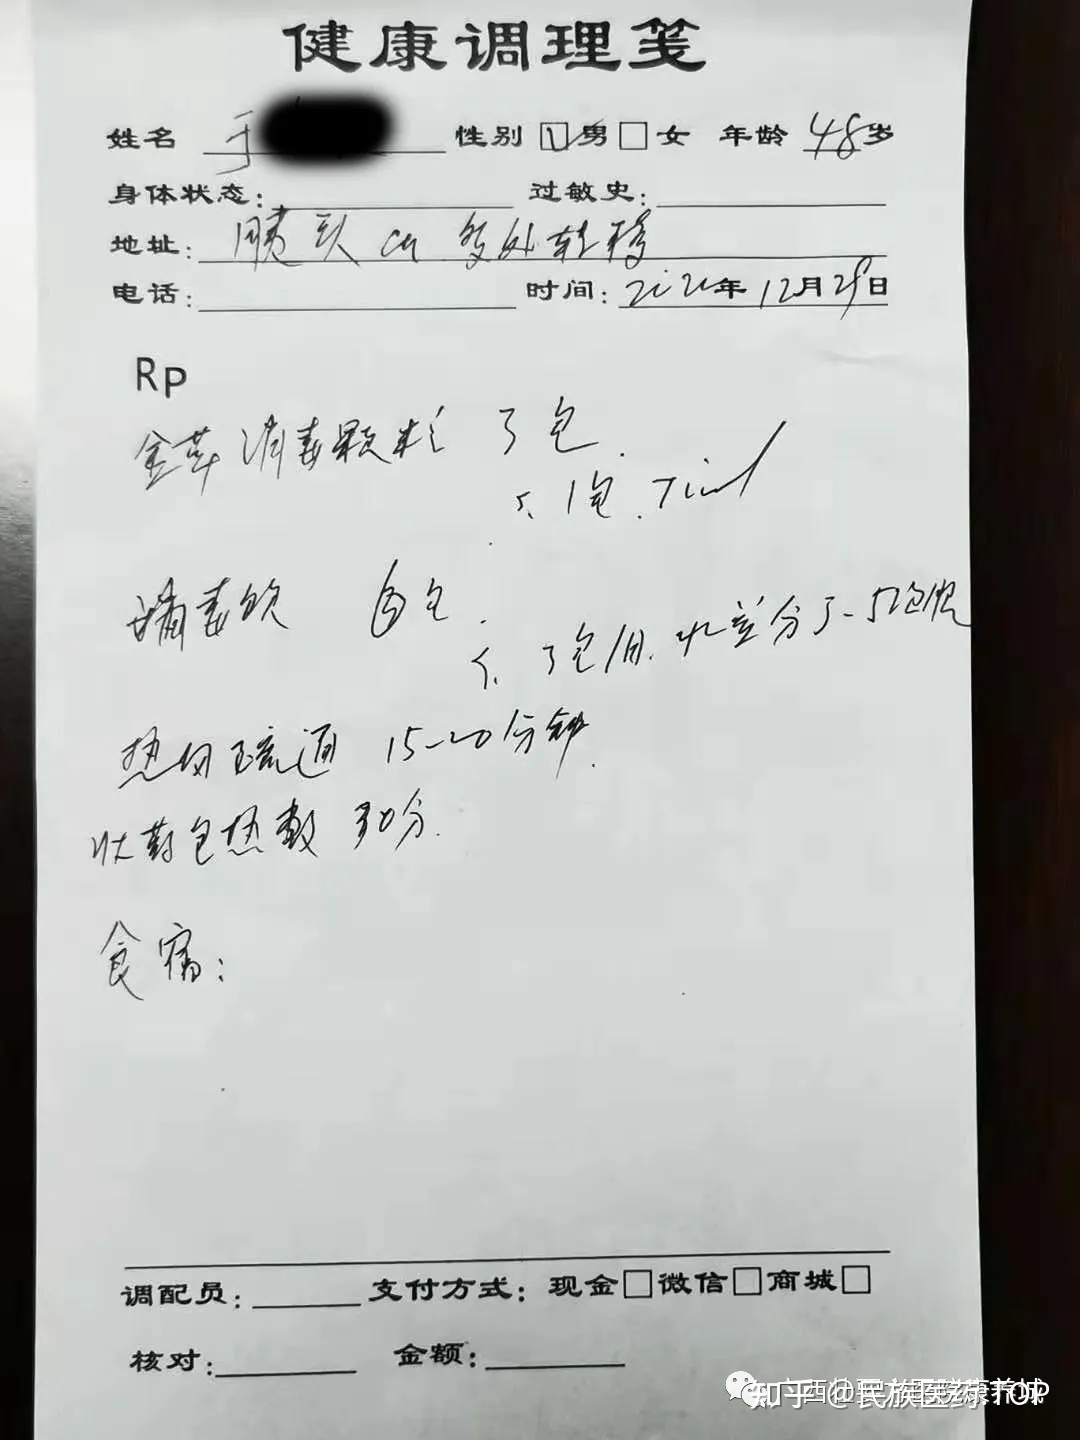 健康调理笺
姓名 于 性别 ☑男 □女 年龄 48岁
身体状态: 过敏史:
地址: 胰头ca 多处转移
电话: 时间: 2020年12月29日
Rp
金草消毒颗粒 3包
1包 Tid
消毒饮 6包
3包/日
热 疏通 15-20分钟
壮药包热敷 30分
食宿:
调配员: 支付方式: 现金□微信□商城□
核对: 金额:
知乎 @民族医药TOP